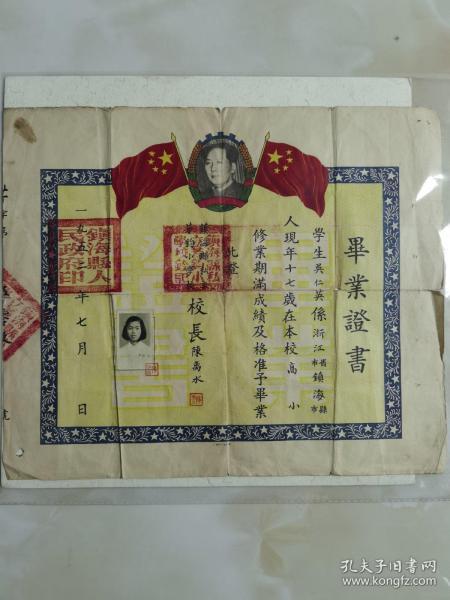 畢業證書
學生吳仁英係浙江省市鎮海縣市
人現年十七歲在本校高小
修業期滿成績及格准予畢業
此證
校長陳禹水
一九五 年七月 日
鎮海縣人民政府印
孔夫子旧书网
www.kongfz.com